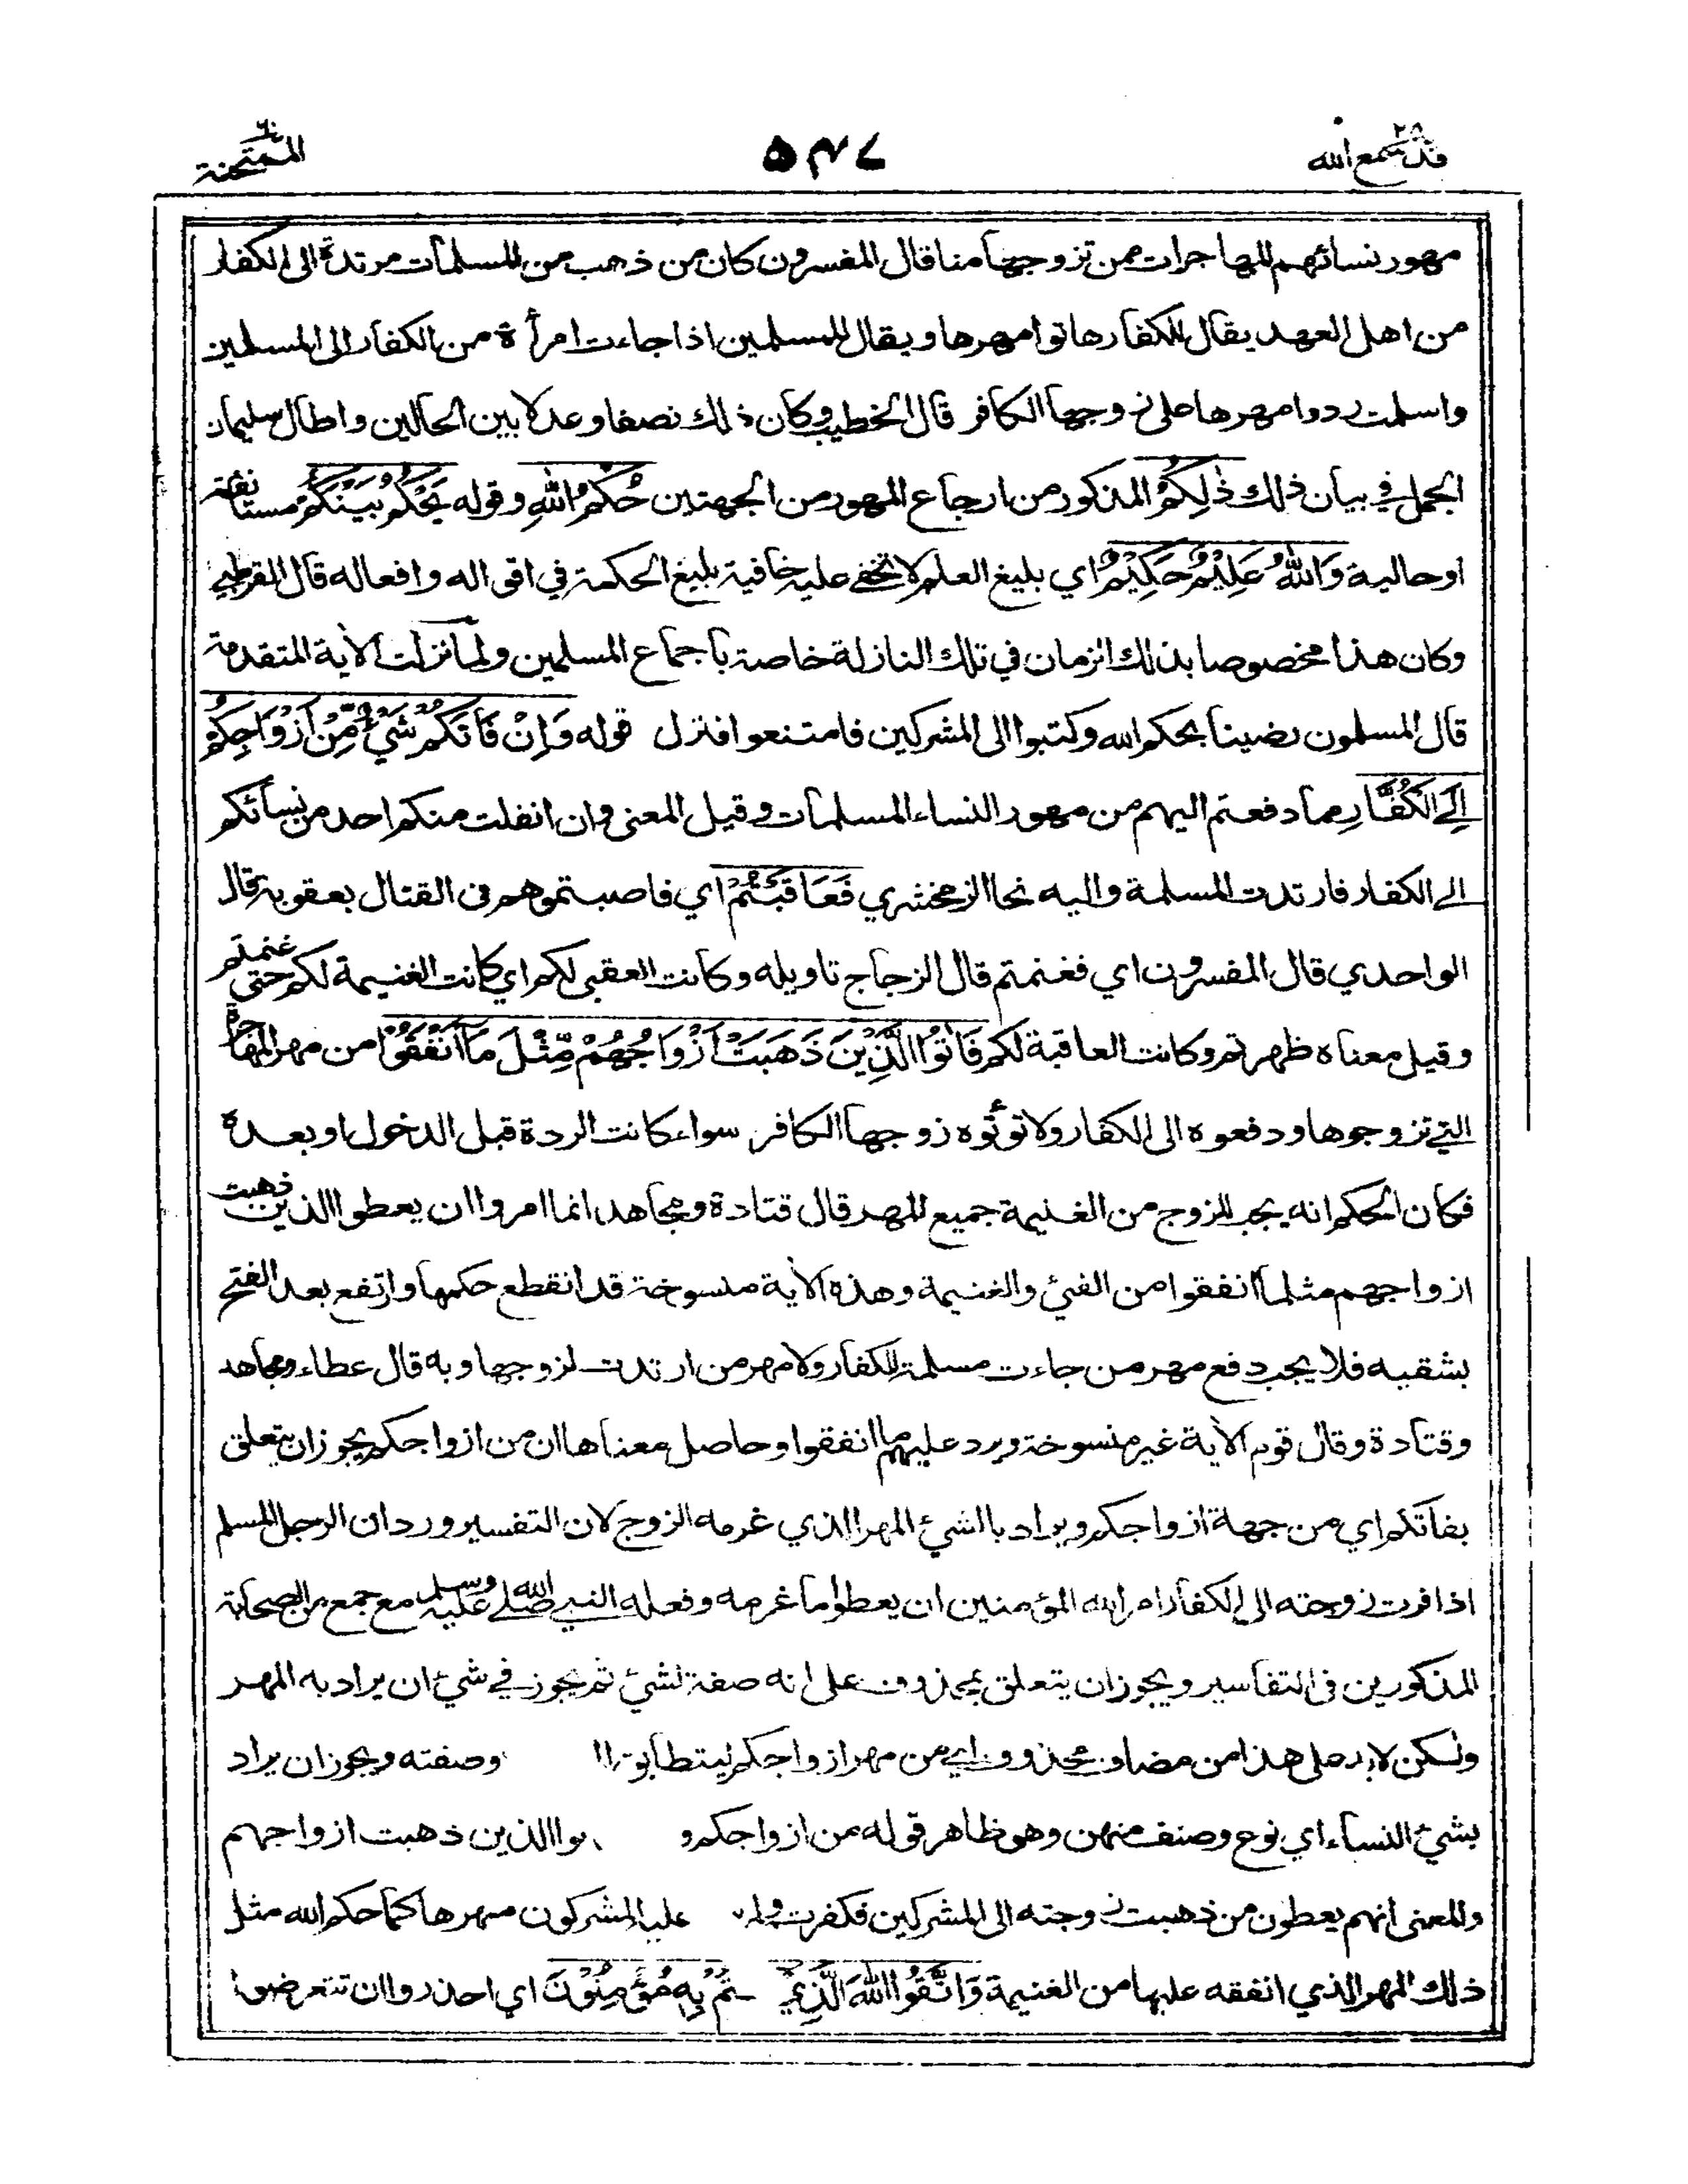 قد سمع الله ٢٨
٥٤٧
الممتحنة ٦٠
مهور نسائهم المهاجرات ممن تزوجها منا قال المفسرون كان من ذهب من المسلمات مرتدة الى الكفار
من اهل العهد يقال للكفار هاتوا مهرها ويقال للمسلمين اذا جاءت امرأة من الكفار الى المسلمين
واسلمت ردوا مهرها على زوجها الكافر قال الخطيب وكان ذلك نصفا وعدلا بين الحالين واطال سليمان
الجمل في بيان ذلك ذٰلِكُمْ المذكور من ارجاع المهور من الجهتين حُكْمُ اللّٰهِ وقوله يَحْكُمُ بَيْنَكُمْ مستانفة
او حالية وَاللّٰهُ عَلِيْمٌ حَكِيْمٌ اي بليغ العلم لا تخفى عليه خافية بليغ الحكمة في اقواله وافعاله قال القرطبي
وكان هذا مخصوصا بذلك الزمان في تلك النازلة خاصة باجماع المسلمين ولما نزلت الآية المتقدمة
قال المسلمون رضينا بحكم الله وكتبوا الى المشركين فامتنعوا فنزل قوله وَاِنْ فَاتَكُمْ شَيْءٌ مِّنْ اَزْوَاجِكُمْ
اِلَى الْكُفَّارِ مما دفعتم اليهم من مهور النساء المسلمات وقيل المعنى وان انفلت منكم احد من نسائكم
الى الكفار فارتدت المسلمة واليه نحا الزمخشري فَعَاقَبْتُمْ اي فاصبتموهم في القتال بعقوبة قال
الواحدي قال المفسرون اي فغنمتم قال الزجاج تاويله وكانت العقبى لكم اي كانت الغنيمة لكم حتى غنمتم
وقيل معناه ظهرتم وكانت العاقبة لكم فَاٰتُوا الَّذِيْنَ ذَهَبَتْ اَزْوَاجُهُمْ مِّثْلَ مَا اَنْفَقُوْا من مهر المهاجرة
التي تزوجوها ودفعوه الى الكفار ولا تؤتوه زوجها الكافر سواء كانت الردة قبل الدخول او بعده
فكان الحكم انه يجب للزوج من الغنيمة جميع المهر قال قتادة ومجاهد انما امروا ان يعطوا الذين ذهبت
ازواجهم مثل ما انفقوا من الفيء والغنيمة وهذه الآية منسوخة قد انقطع حكمها وارتفع بعد الفتح
بشقيه فلا يجب دفع مهر من جاءت مسلمة للكفار ولا مهر من ارتدت لزوجها وبه قال عطاء ومجاهد
وقتادة وقال قوم الآية غير منسوخة ويرد عليهم ما انفقوا وحاصل معناها ان من ازواجكم يجوز ان يتعلق
بفاتكم اي من جهة ازواجكم ويراد بالشيء المهر الذي غرمه الزوج لان التفسير ورد ان الرجل المسلم
اذا فرت زوجته الى الكفار امر الله المؤمنين ان يعطوا ما غرمه وفعله النبي صلى الله عليه وسلم مع جمع من الصحابة
المذكورين في التفاسير ويجوز ان يتعلق بمحذوف على انه صفة لشيء ثم يجوز في شيء ان يراد به المهر
ولكن لا بد على هذا من مضاف محذوف اي من مهر ازواجكم ليتطابق وصفته ويجوز ان يراد
بشيء النساء اي نوع وصنف منهن وهو ظاهر قوله من ازواجكم و الذين ذهبت ازواجهم
والمعنى انهم يعطون من ذهبت زوجته الى المشركين فكفرت المشركون مهرها كما حكم الله مثل
ذلك المهر الذي انفقه عليها من الغنيمة وَاتَّقُوا اللّٰهَ الَّذِيْ بِهٖ مُؤْمِنُوْنَ اي احذروا ان تتعرضوا